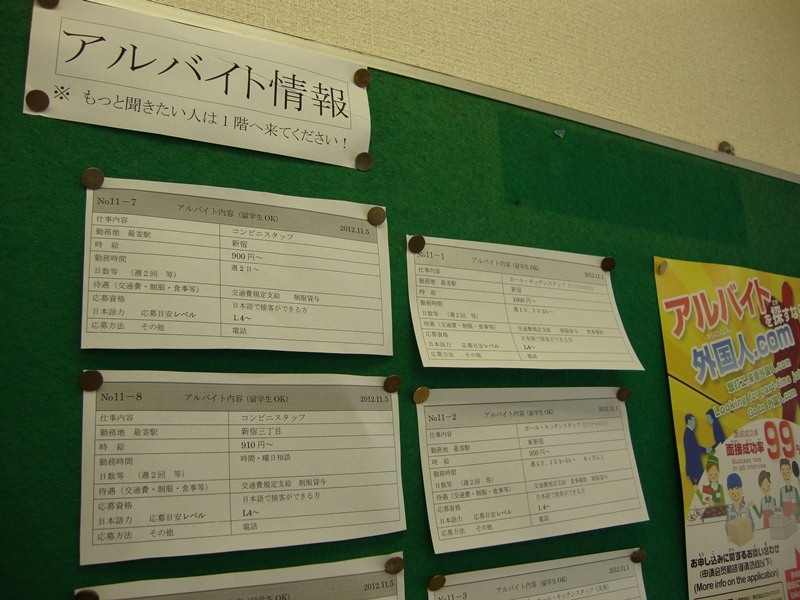 アルバイト情報
※ もっと聞きたい人は1階へ来てください!
No11-7 アルバイト内容(留学生OK) 2012.11.5
仕事内容 コンビニスタッフ
勤務地 最寄駅 新宿
時 給 900円~
勤務時間 週2日~
日数等 (週2回 等)
待遇(交通費・制服・食事等) 交通費規定支給 制服貸与
応募資格 日本語で接客ができる方
日本語力 応募目安レベル L4~
応募方法 その他 電話
No11-8 アルバイト内容(留学生OK) 2012.11.5
仕事内容 コンビニスタッフ
勤務地 最寄駅 新宿三丁目
時 給 910円~
勤務時間 時間・曜日相談
日数等 (週2回 等)
待遇(交通費・制服・食事等) 交通費規定支給 制服貸与
応募資格 日本語で接客ができる方
日本語力 応募目安レベル L4~
応募方法 その他 電話
2012.11.5
No11-1 アルバイト内容(留学生OK) 2012.11.1
仕事内容 ホール・キッチンスタッフ
勤務地 最寄駅 新宿
時 給 1000円~
勤務時間
日数等 (週2回 等)
待遇(交通費・制服・食事等) 交通費規定支給 制服貸与 食事補助
応募資格 日本語で接客ができる方
日本語力 応募目安レベル L4~
応募方法 その他 電話
No11-2 アルバイト内容(留学生OK) 2012.11.1
仕事内容 ホール・キッチンスタッフ
勤務地 最寄駅 東新宿
時 給 950円~
勤務時間
日数等 (週2回 等)
待遇(交通費・制服・食事等) 交通費規定支給 食事補助 制服貸与
応募資格 日本語で接客ができる方
日本語力 応募目安レベル L4~
応募方法 その他 電話
No11-3 アルバイト内容(留学生OK)
ホール・キッチンスタッフ
アルバイト
を探すな
外国人.com
Looking for part-time jo
Go to 外国人.com
面接成功率 99
Success rate
in job interview
お申し込みに関するお問い合わせ
(More info on the application)